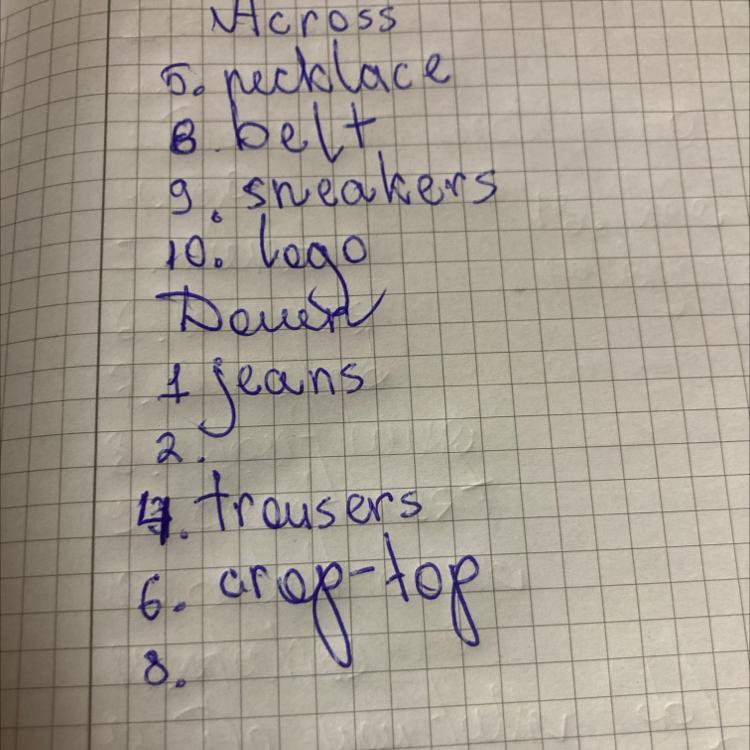 Across
5. necklace
8. belt
9. sneakers
10. logo
Down
1 jeans
2.
4. trousers
6. crop-top
8.